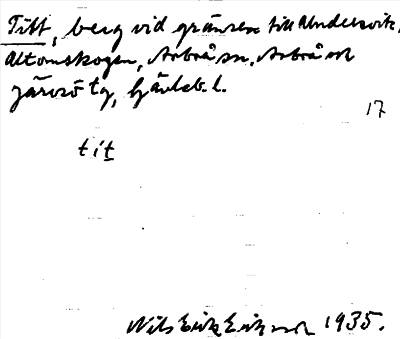 Titt, berg vid gränsen till Undersvik,
Altomskogen, Arbrå sn, Arbrå och
Järvsö tg, Gävleb. l.
17
tit
Nils Erik Eriksson 1935.